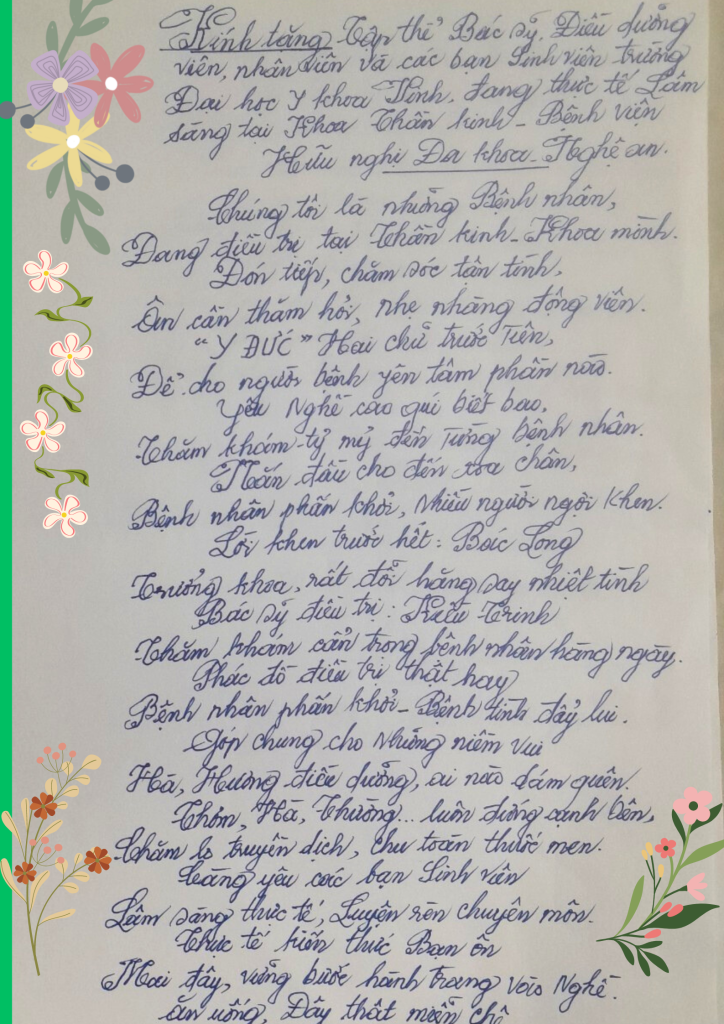 Kính tặng Tập thể Bác sỹ, Điều dưỡng
viên, nhân viên và các bạn Sinh viên trường
Đại học Y khoa Vinh. đang thực tế Lâm
sàng tại Khoa Thần kinh - Bệnh viện
Hữu nghị Đa khoa - Nghệ an.
Chúng tôi là những Bệnh nhân,
Đang điều trị tại Thần kinh - Khoa mình.
Đón tiếp, chăm sóc tận tình,
Ân cần thăm hỏi, nhẹ nhàng động viên.
"Y ĐỨC" Hai chữ trước Tiên,
Để cho người bệnh yên tâm phần nào.
Yêu Nghề cao quí biết bao,
Thăm khám tỷ mỷ đến Từng bệnh nhân.
Nắn đầu cho đến xoa chân,
Bệnh nhân phấn khởi, Nhiều người ngợi Khen.
Lời khen trước hết: Bác Long
Trưởng khoa, rất đỗi hăng say nhiệt tình
Bác sỹ điều trị: Kiều Trinh
Thăm khám cẩn trọng bệnh nhân hàng ngày.
Phác đồ điều trị thật hay
Bệnh nhân phấn khởi - Bệnh tình đẩy lui.
Góp chung cho Những niềm vui
Hà, Hương điều dưỡng, ai nào dám quên.
Thơm, Hà, Thường... luôn đứng cạnh bên,
Chăm lo truyền dịch, chu toàn thuốc men.
Càng yêu các bạn Sinh viên
Lâm sàng thực tế, Luyện rèn chuyên môn.
Thực tế kiến thức Bạn ôn
Mai đây, vững bước hành trang vào Nghề.
ăn uống, Dãy thật miễn chê